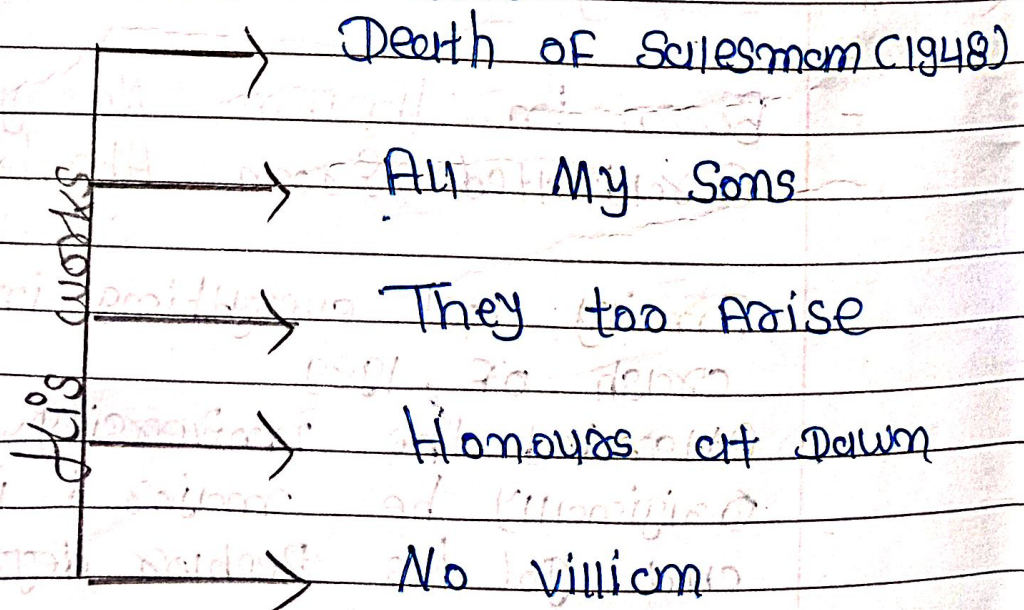 His works
Death of Salesman (1948)
All My Sons
They too Arise
Honours at Dawn
No Villian